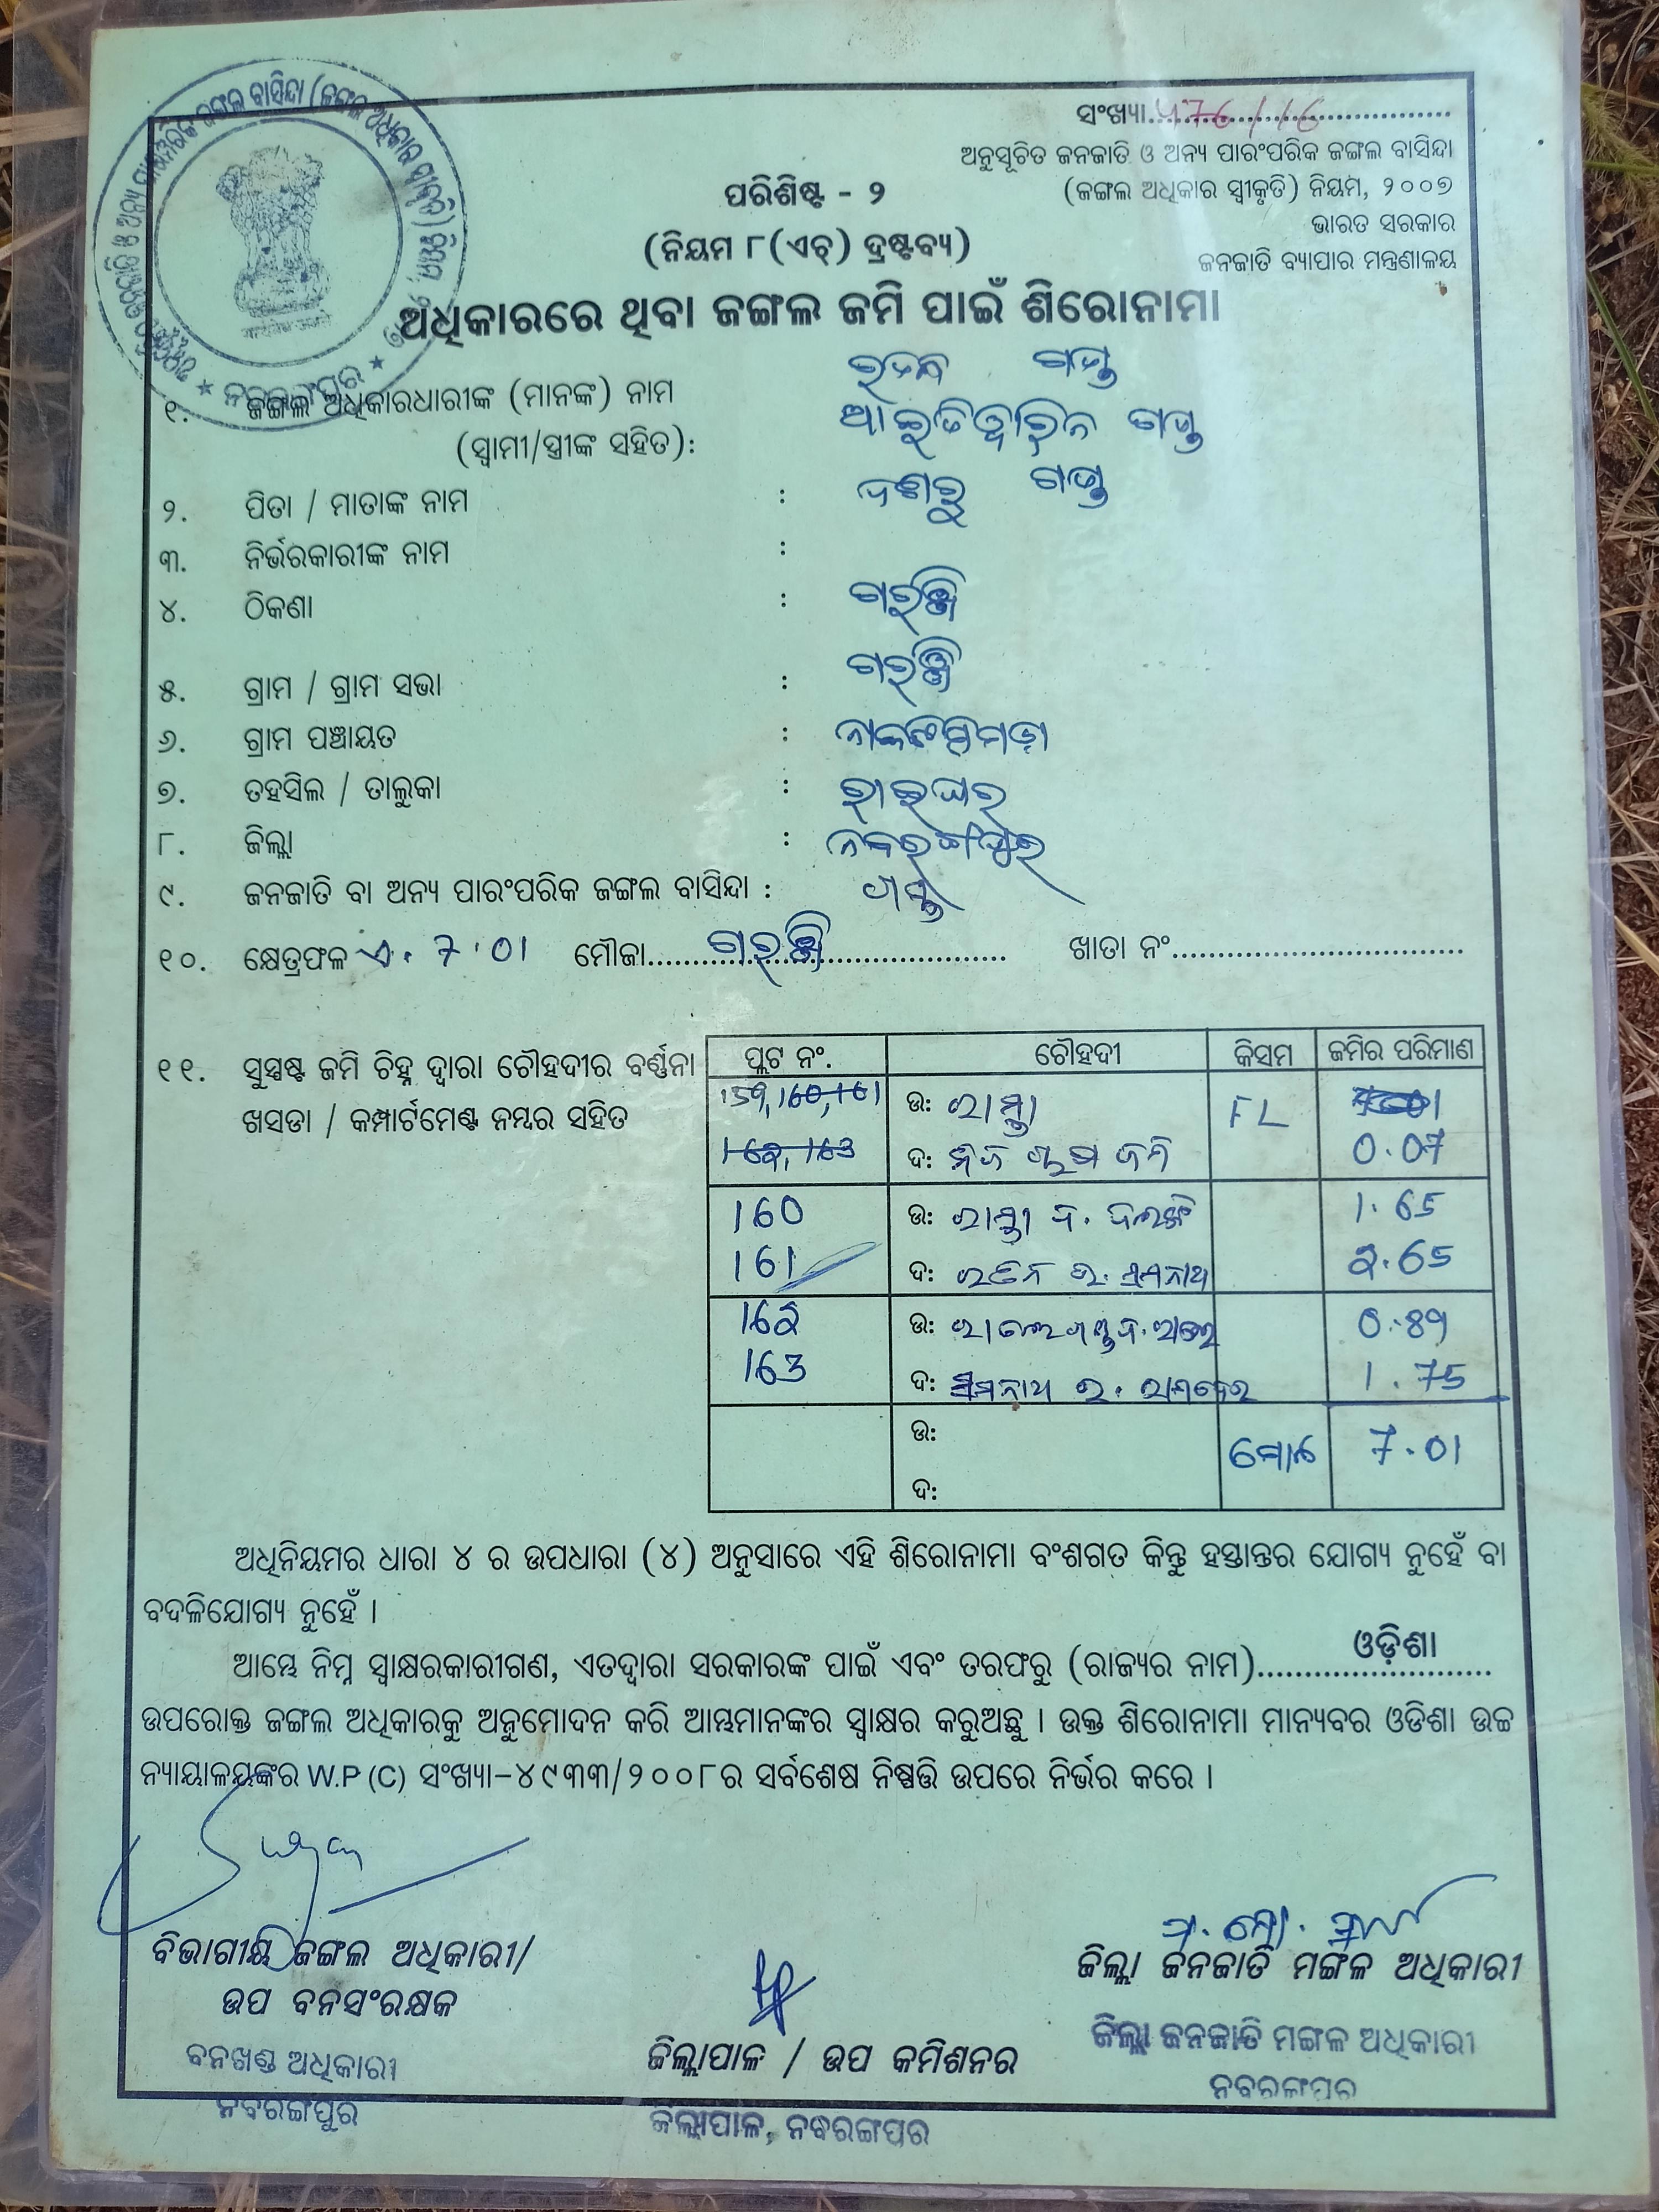 ସଂଖ୍ୟା..................................
ଅନୁସୂଚିତ ଜନଜାତି ଓ ଅନ୍ୟ ପାରଂପରିକ ଜଙ୍ଗଲ ବାସିନ୍ଦା
(ଜଙ୍ଗଲ ଅଧିକାର ସ୍ୱୀକୃତି) ନିୟମ, ୨୦୦୭
ଭାରତ ସରକାର
ଜନଜାତି ବ୍ୟାପାର ମନ୍ତ୍ରଣାଳୟ
ପରିଶିଷ୍ଟ - ୨
(ନିୟମ ୮(ଏଚ୍) ଦ୍ରଷ୍ଟବ୍ୟ)
ଅଧିକାରରେ ଥିବା ଜଙ୍ଗଲ ଜମି ପାଇଁ ଶିରୋନାମା
୧. ଜଙ୍ଗଲ ଅଧିକାରଧାରୀଙ୍କ (ମାନଙ୍କ) ନାମ
(ସ୍ୱାମୀ/ସ୍ତ୍ରୀଙ୍କ ସହିତ):
୨. ପିତା / ମାତାଙ୍କ ନାମ :
୩. ନିର୍ଭରକାରୀଙ୍କ ନାମ :
୪. ଠିକଣା :
୫. ଗ୍ରାମ / ଗ୍ରାମ ସଭା :
୬. ଗ୍ରାମ ପଞ୍ଚାୟତ :
୭. ତହସିଲ / ତାଲୁକା : ରାଇଘର
୮. ଜିଲ୍ଲା : ନବରଙ୍ଗପୁର
୯. ଜନଜାତି ବା ଅନ୍ୟ ପାରଂପରିକ ଜଙ୍ଗଲ ବାସିନ୍ଦା :
୧୦. କ୍ଷେତ୍ରଫଳ ଏ. 7.01 ମୌଜା.................................... ଖାତା ନଂ.................................
୧୧. ସୁସ୍ପଷ୍ଟ ଜମି ଚିହ୍ନ ଦ୍ୱାରା ଚୌହଦୀର ବର୍ଣ୍ଣନା
ଖସଡା / କମ୍ପାର୍ଟମେଣ୍ଟ ନମ୍ବର ସହିତ
ପ୍ଲଟ ନଂ. ଚୌହଦୀ କିସମ ଜମିର ପରିମାଣ
159, 160, 161 ଉ: ରାସ୍ତା FL
162, 163 ଦ: 0.07
160 ଉ: ରାସ୍ତା 1.65
161 ଦ: 2.65
162 ଉ: 0.89
163 ଦ: 1.75
ଉ: ମୋଟ 7.01
ଦ:
ଅଧିନିୟମର ଧାରା ୪ ର ଉପଧାରା (୪) ଅନୁସାରେ ଏହି ଶିରୋନାମା ବଂଶଗତ କିନ୍ତୁ ହସ୍ତାନ୍ତର ଯୋଗ୍ୟ ନୁହେଁ ବା
ବଦଳିଯୋଗ୍ୟ ନୁହେଁ ।
ଆମ୍ଭେ ନିମ୍ନ ସ୍ୱାକ୍ଷରକାରୀଗଣ, ଏତଦ୍ୱାରା ସରକାରଙ୍କ ପାଇଁ ଏବଂ ତରଫରୁ (ରାଜ୍ୟର ନାମ)..........ଓଡ଼ିଶା..........
ଉପରୋକ୍ତ ଜଙ୍ଗଲ ଅଧିକାରକୁ ଅନୁମୋଦନ କରି ଆମ୍ଭମାନଙ୍କର ସ୍ୱାକ୍ଷର କରୁଅଛୁ । ଉକ୍ତ ଶିରୋନାମା ମାନ୍ୟବର ଓଡିଶା ଉଚ୍ଚ
ନ୍ୟାୟାଳୟଙ୍କର W.P (C) ସଂଖ୍ୟା-୪୯୩୩/୨୦୦୮ର ସର୍ବଶେଷ ନିଷ୍ପତ୍ତି ଉପରେ ନିର୍ଭର କରେ ।
ବିଭାଗୀୟ ଜଙ୍ଗଲ ଅଧିକାରୀ/
ଉପ ବନସଂରକ୍ଷକ
ବନଖଣ୍ଡ ଅଧିକାରୀ
ନବରଙ୍ଗପୁର
ଜିଲ୍ଲାପାଳ / ଉପ କମିଶନର
ଜିଲ୍ଲାପାଳ, ନବରଙ୍ଗପୁର
ଜିଲ୍ଲା ଜନଜାତି ମଙ୍ଗଳ ଅଧିକାରୀ
ଜିଲ୍ଲା ଜନଜାତି ମଙ୍ଗଳ ଅଧିକାରୀ
ନବରଙ୍ଗପୁର